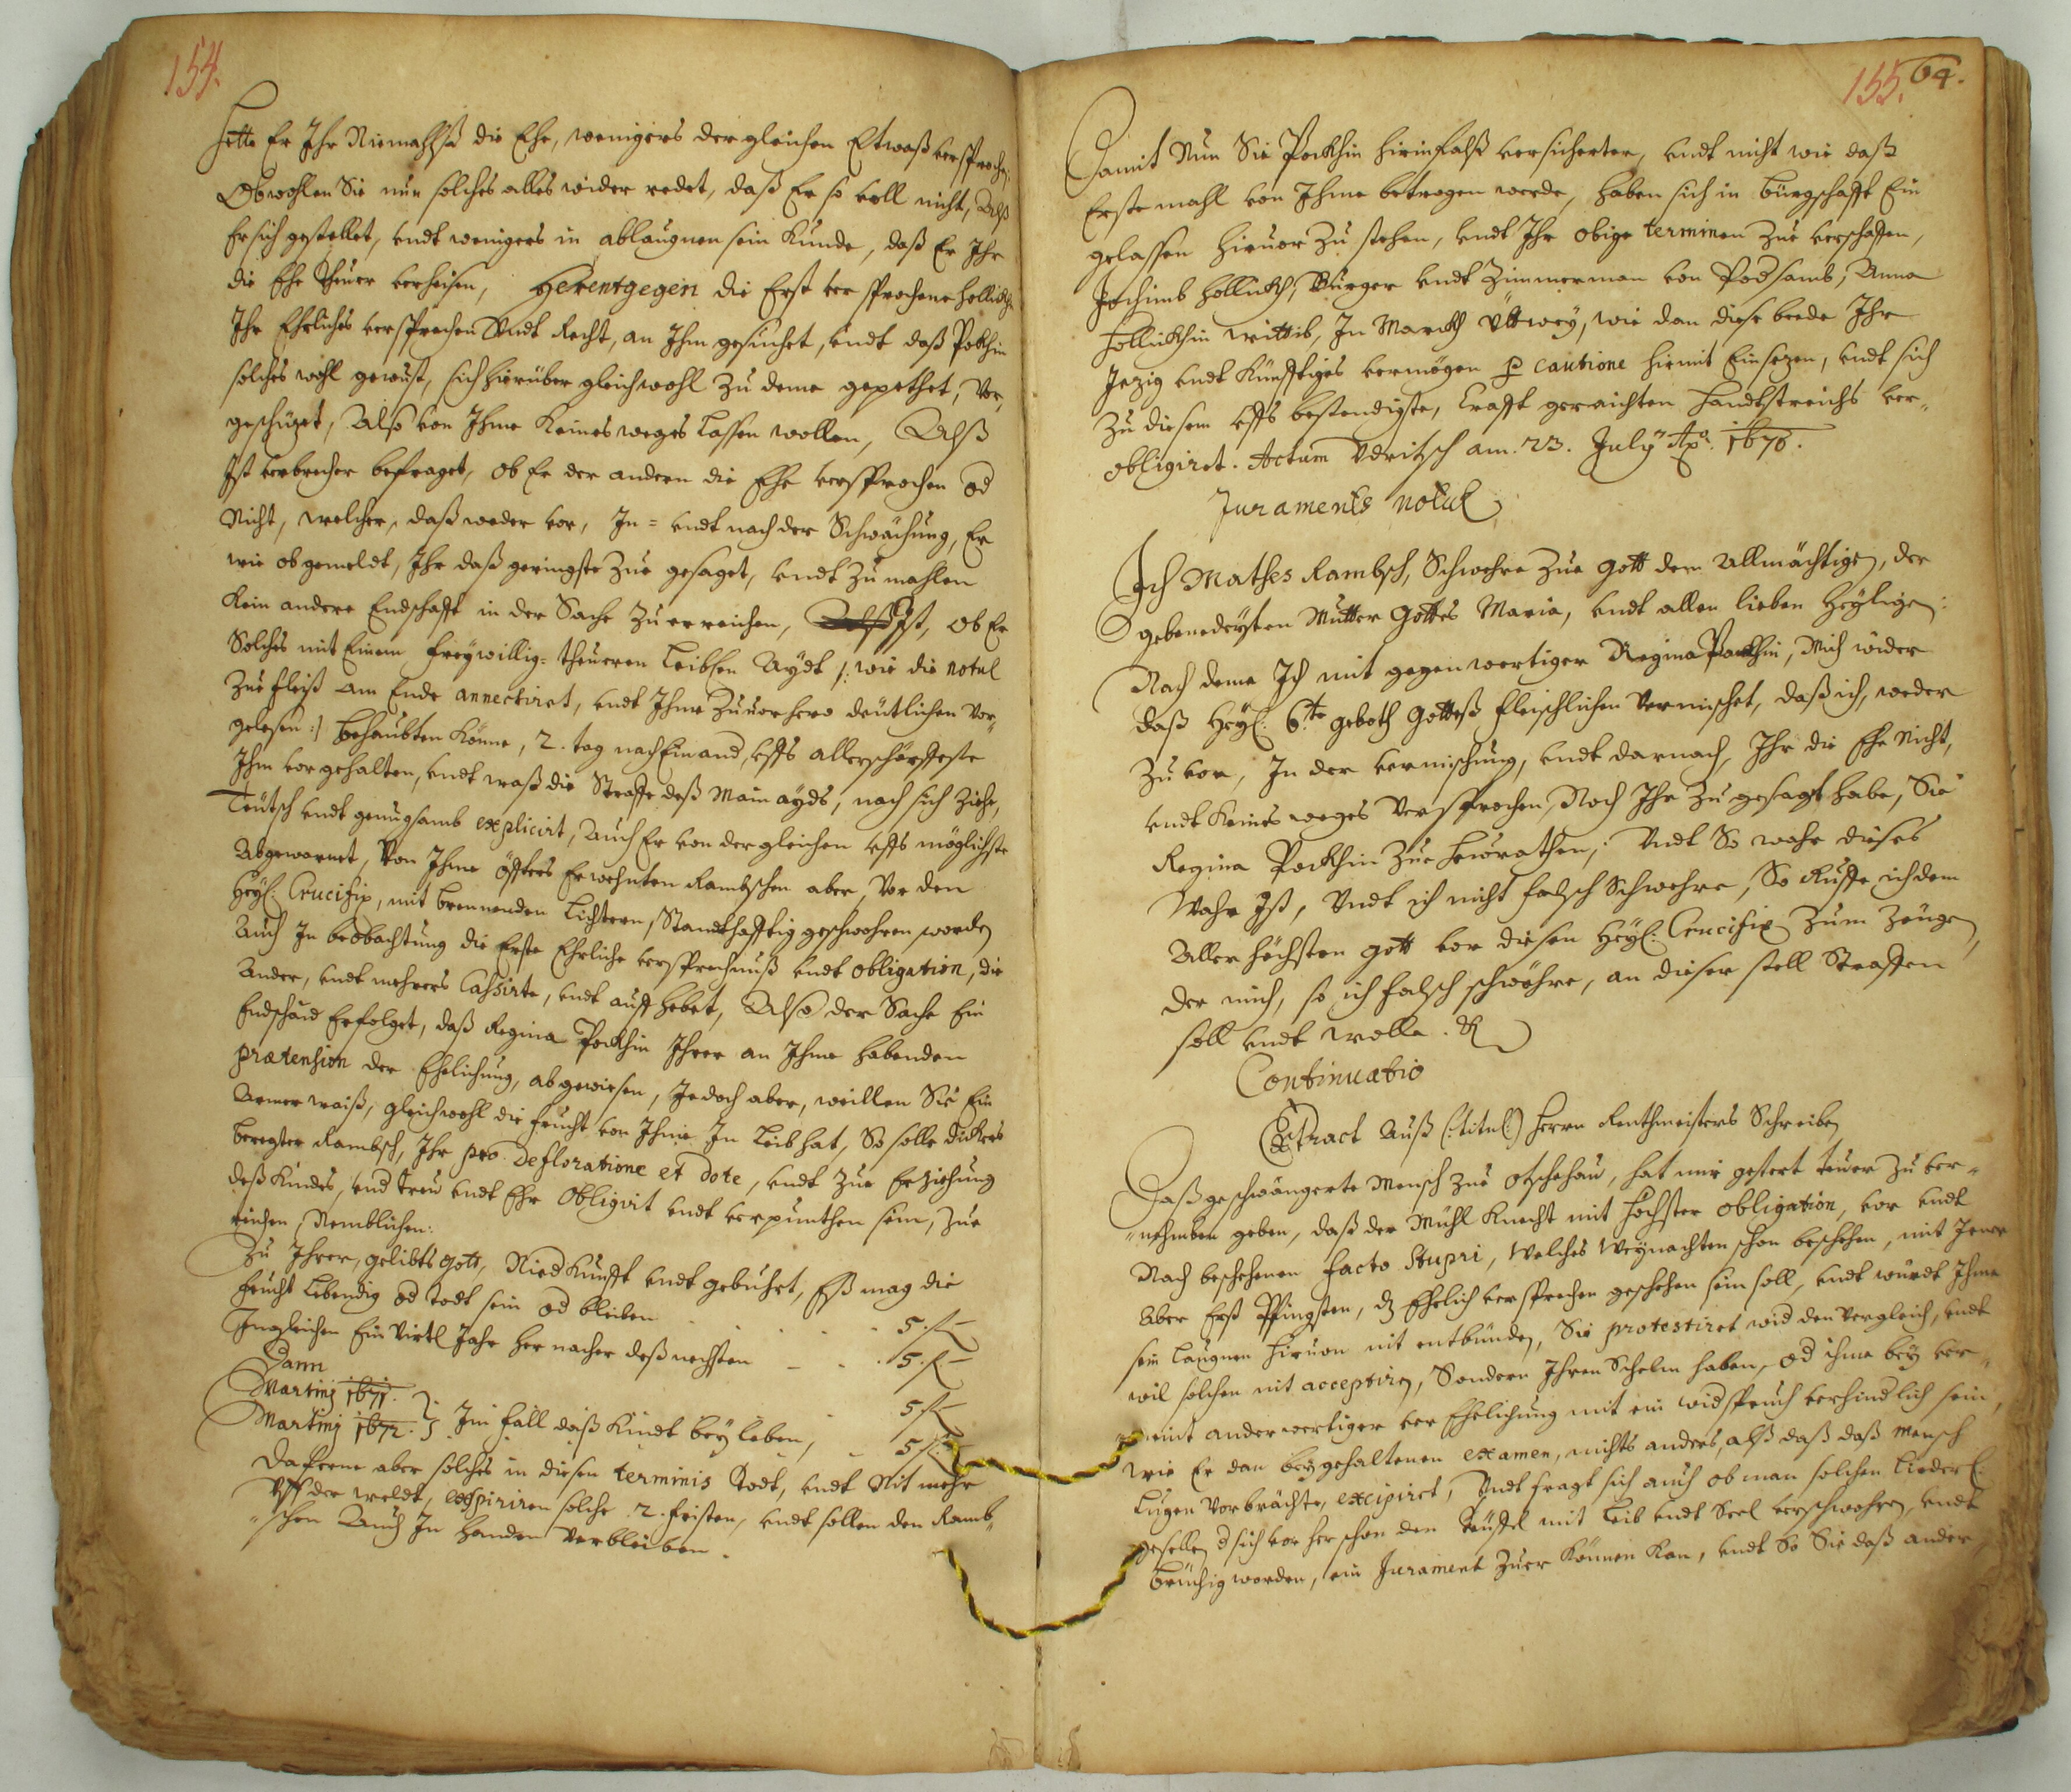 154.
Hette Er Ihr Niemahlß die Ehe, wenigers dergleichen Etwaß versprochen:
Obwohlen Sie nun solches alles wider redet, daß Er so voll nicht, Alß
Er sich gestellet, undt wenigers in ablaugnen sein Kunde, daß Er Ihr
die Ehe theuer verheisen, Herentgegen die Erst versprochene Hollickh:
Ihr Ehrliches versprechen Undt Recht, an Ihm gesuchet, undt daß Pockhin
solches wohl gewust, sich hierüber gleichwohl zu deme gepethet, Vor,
geschüzet, Also von Ihme Keines weges lassen wollen, Alß
Ist verbrecher befraget, ob Er der andern die Ehe versprochen od
Nicht, welcher, daß weder vor, In- undt nach der Schwächung, Er
wie obgemeldt, Ihr daß geringste zue gesaget, undt zu mahlen
Kein andere Endschafft in der Sache zu erreichen, Ist, ob Er
Solches mit Einem freywillig- theueren Leiblen Aydt /: wie die notul
zue fleiß am Ende annectiret, undt Ihme zuuorhero deutlichen Vor,
gelesen :/ behaubten Könne, 2. tag nach Einand, uffs allerschärffeste
Ihm vorgehalten, undt waß die Straffe deß Mainayds, nach sich ziehe,
Teütsch undt genugsamb explicirt, Auch Er von dergleichen uffs möglichste
Abgewarnet, Von Ihme öffters Erwehnten Rambschen aber, Vor den
Heyl: Crucifix, mit brennenden Lichtern, Standthafftig geschwohren worden
Auch In beobachtung die Erste Ehrliche versprechnuß undt obligation, die
Ander, undt mehrers Cassirte, undt auffhebet, Also der Sache Ein
Endschaid Erfolget, daß Regina Pockhin Ihrer an Ihme habenden
prætension der Ehelichung, abgewiesen, Jedoch aber, weillen Sie Ein
Armer waiß, gleichwohl die frucht von Ihme In Leib hat, So solle dickres
beregter Rambsch, Ihr pro Defloratione et dote, undt zue Erziehung
deß Kindes, und treu undt Ehr Obligirt undt verpunthen sein, zue
reichen, Nemblichen:
Zu Ihrer, geliebts Gott, Niedkunfft undt gebuhrt, Eß mag die
frucht Lebendig od todt sein od bleiben . . . . 5. f. –
Ingleichen Ein Virtl Jahr her nacher deß nechsten – . . 5. f. –
Dann
Martinj 1671. . 5 f. –
Martinj 1672. } Im fall daß Kindt bey leben, – 5 f. –
Daferne aber solches in diesen terminis Todt, undt Nit mehr
Uff der weldt, exspiriren solche 2. fristen, undt sollen den Ramb,,
,,schen Auch In handen Verbleiben.
155. 64.
Damit Nun Sie Pockhin hierinfalß versicherter, undt nicht wie daß
Erste mahl von Ihme betrogen werde, haben sich in bürgschafft Ein
gelassen hieuor zu stehen, undt Ihr obige terminen zue verschaffen,
Jochimb Hollickh, Bürger undt Zimmerman von Podsamb, Anna
Hollickhin Wittib, In Marckh Uttwey, wie dan diese beede Ihr
Jezig undt Künfftiges vermögen p cautione hiemit Einsezen, undt sich
zu diesem uffs bestendigste, Crafft geraichten Handtstreichs ver-,
obligiret. Actum Udritsch am. 23. July Ao. 1670.
Juraments Notul
Ich Mathes Rambsch, Schwehre zue Gott dem Allmächtigen, der
gebenedeyten Mutter Gottes Maria, undt allen lieben Heyligen:
Nach deme Ich mit gegenwertiger Regina Pockhin, Mich wider
daß Heyl: 6te geboth Gotteß fleischlichen Vermischet, daß ich, weder
zu vor, In der vermischung, undt darnach, Ihr die Ehe Nicht,
undt Keines weges Versprochen, Noch Ihr zu gesagt habe, Sie
Regina Pockhin zue heurathen; Undt So wahr dieses
Wahr Ist, Undt ich nicht falsch Schwehre, So Ruffe ich dem
Aller höchsten Gott vor diesen Heyl: Crucifix zum Zeugen,
der mich, so ich falsch schwöhre, an dieser stell Straffen
soll undt wolle. &
Continuatio
Extract Auß (:titul:) Herrn Renthmeisters Schreiben
Daß geschwängerte Mensch zue Otschehau, hat mir gestert teuer zu ver-,
,,nehmben geben, daß der Mühl Knecht mit Höchster obligation, vor undt
Nach beschehenen facto Stupri, Welches Weynachten schon beschehen, mit Jener
Aber Erst Pfingsten, dz Ehelich versprechen geschehen sein soll, undt würdt Ihme
sein Laugnen hieruon nit entbünden, Sie protestiret wid den Vergleich, undt
wil solchen nit acceptiren, Sondern Ihren Schelm haben, od ihme bey ver-,
meint anderwertiger ver Ehelichung mit ein widspruch verhindlich sein,
wie Er dan bey gehaltenen examen, nichts anders, alß daß daß Mensch
Lugen Vorbrächte, excipiret, Undt fragt sich auch ob man solchen Liederl:
gesellen, d sich vorher schon den Teüffel mit Leib undt Seel verschwohren, undt
brüchig worden, ein Jurament zuer Können Kan, undt so Sie daß ander